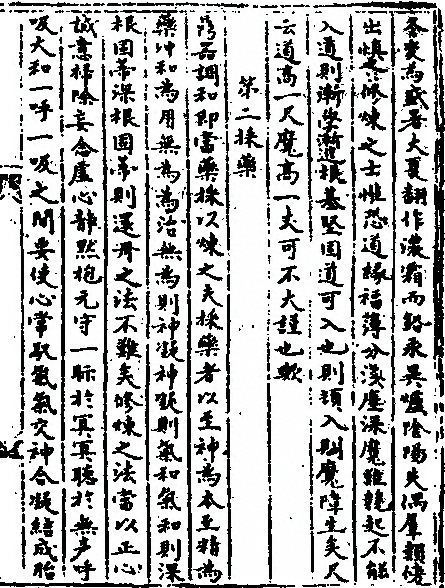 冬変為盛暑大夏翻作濃霜而鉛汞異爐陰陽失偶羣類傍
出慎哉修煉之士惟恐道緣福薄分淺塵深魔難競起不能
入道則漸安漸穩根基堅固道可入也則頓入則魔障生矣尺
云道高一尺魔高一丈可不大謹也歟
第二採藥
器調和即當藥採以煉之夫採藥者以至神為本至精為
藥冲和為用無為為治無為則神凝神凝則氣和氣和則深
根固蒂深根固蒂則還丹之法不難矣修煉之法當以正心
誠意掃除妄念虛心靜然抱元守一眎於冥冥聽於無声呼
吸太和一呼一吸之間要使心常馭氣氣交神合凝結成胎